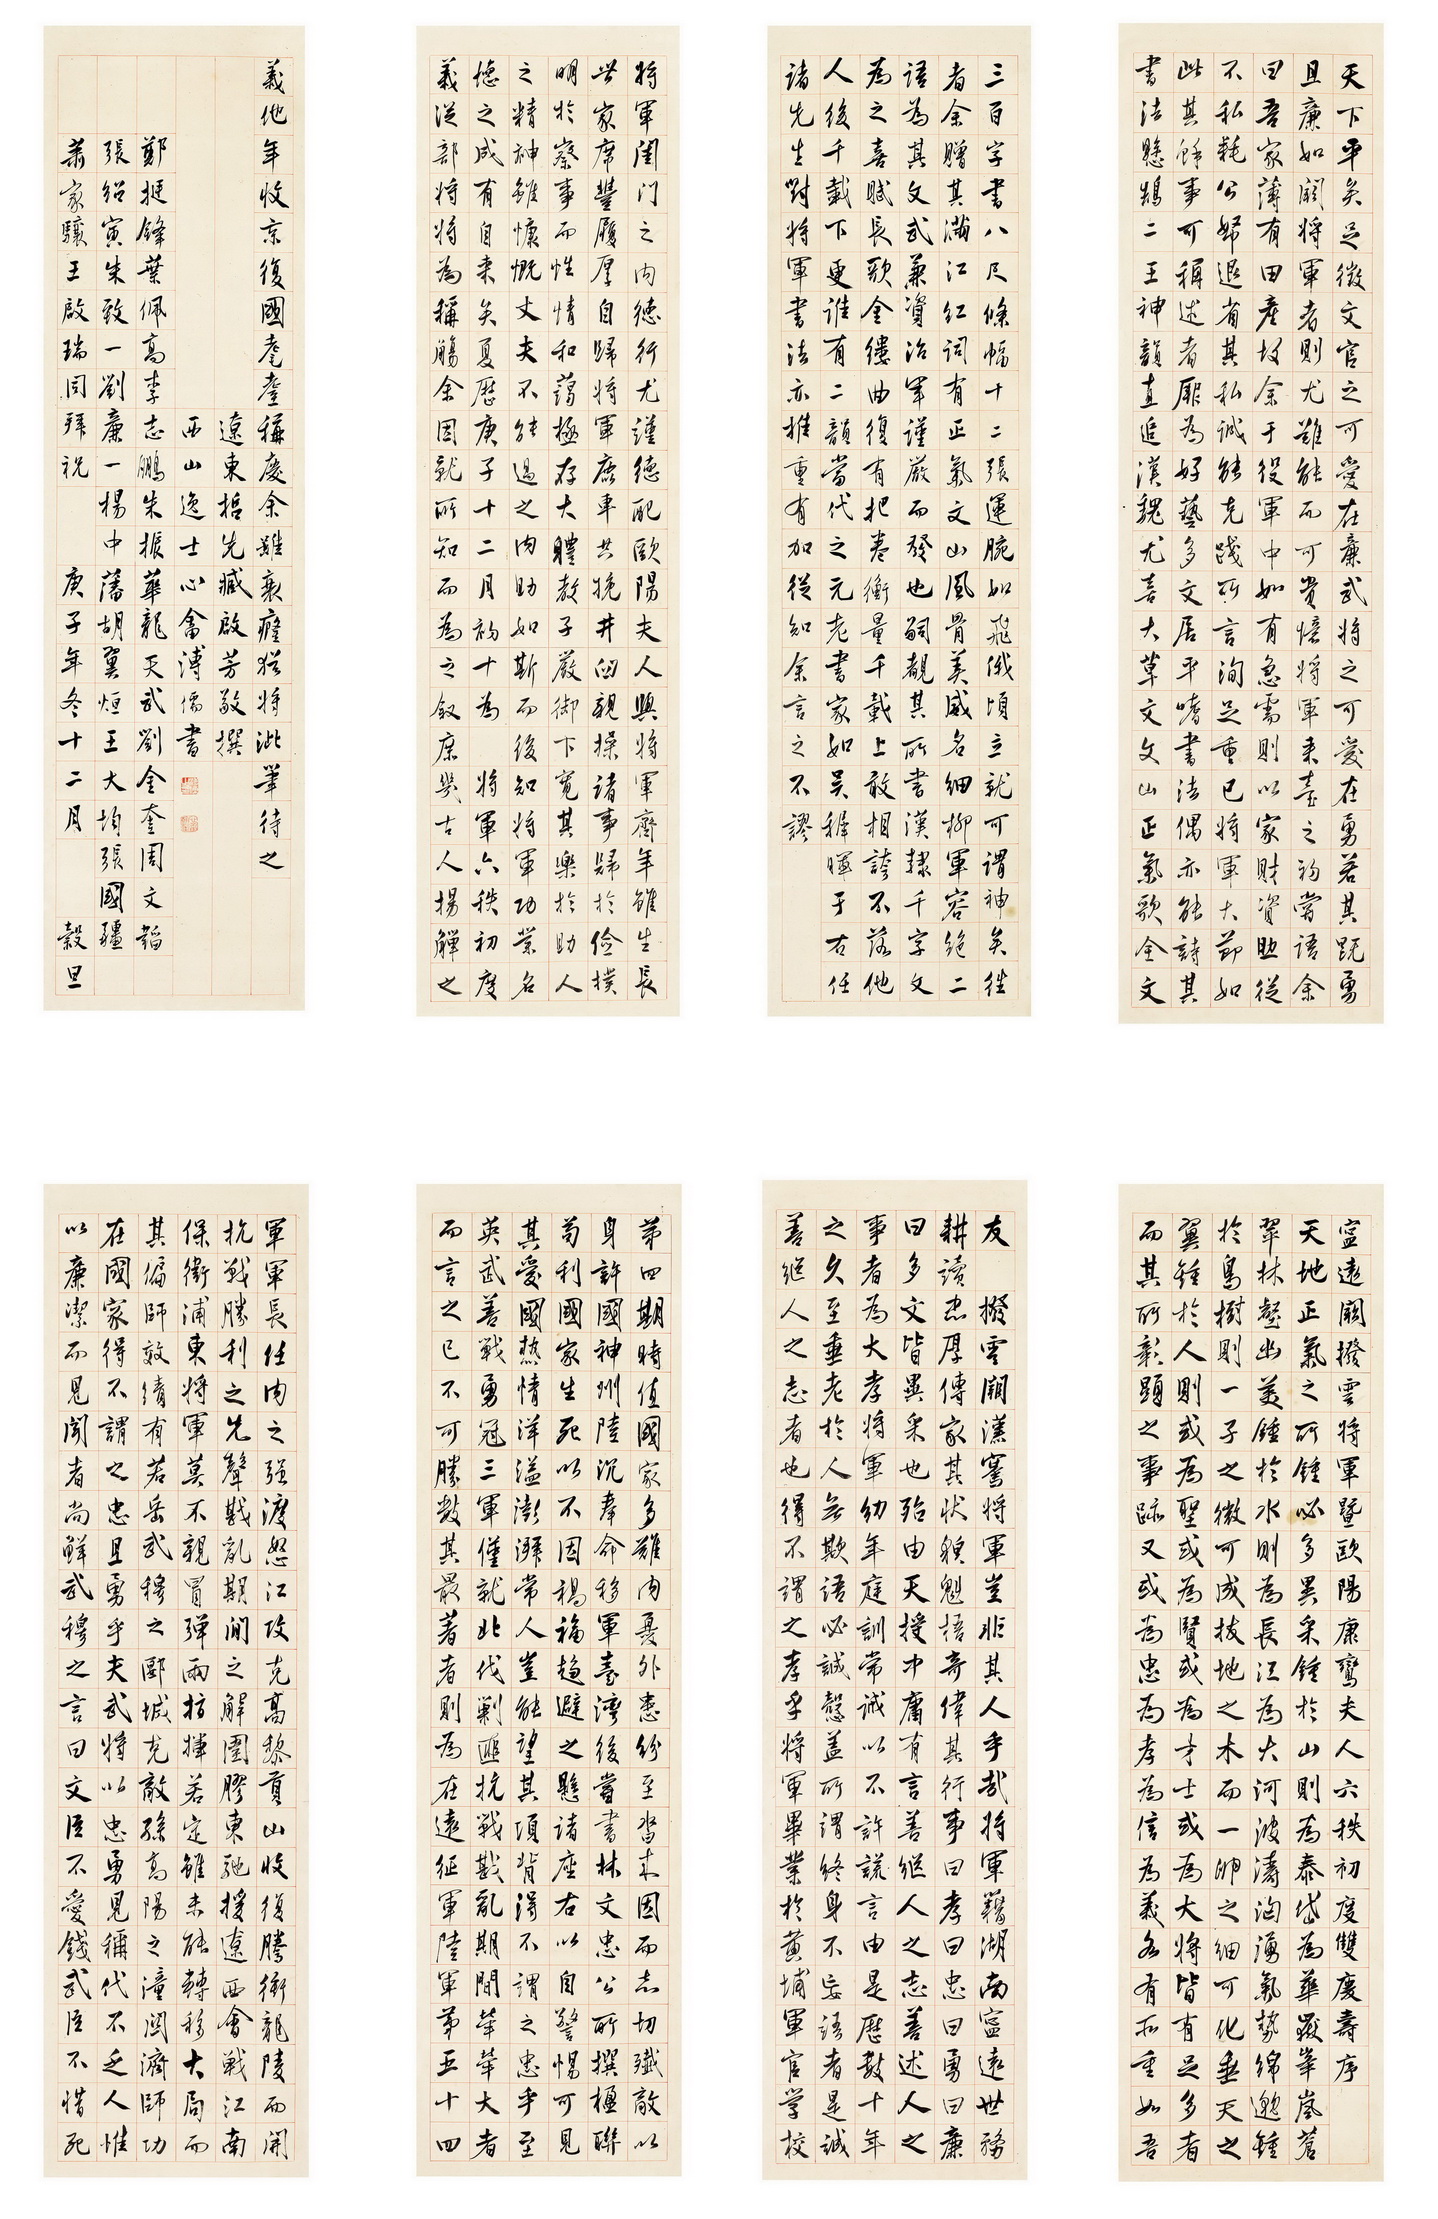 甯遠闕撥雲將軍暨歐陽康鸞夫人六秩初度雙慶壽序
天地正氣之所鍾必多異采鍾於山則為泰岱為華嶽峯嵐蒼
翠林壑幽美鍾於水則為長江為大河波濤洶湧氣勢綿邈鍾
於鳥樹則一子之微可成拔地之木而一卵之細可化垂天之
翼鍾於人則或為聖或為賢或為才士或為大將皆有足多者
而其所彰顯之事跡又或為忠為孝為信為義各有所重如吾
友撥雲闕漢騫將軍豈非其人乎哉將軍籍湖南甯遠世務
耕讀忠厚傳家其狀貌魁梧奇偉其行事曰孝曰忠曰勇曰廉
曰多文皆異采也殆由天授中庸有言善繼人之志善述人之
事者為大孝將軍幼年庭訓常誡以不許謊言由是歷數十年
之久至垂老於人無欺語必誠慤蓋所謂終身不妄語者是誠
善繼人之志者也得不謂之孝乎將軍畢業於黃埔軍官學校
第四期時值國家多難內憂外患紛至沓來因而志切殲敵以
身許國神州陸沉奉命移軍臺灣後嘗書林文忠公所撰楹聯
苟利國家生死以不因禍福趨避之懸諸座右以自警惕可見
其愛國熱情洋溢澎湃常人豈能望其項背得不謂之忠乎至
英武善戰勇冠三軍僅就北伐剿匪抗戰戡亂期間犖犖大者
而言之已不可勝數其最著者則為在遠征軍陸軍第五十四
軍軍長任內之強渡怒江攻克高黎貢山收復騰衝龍陵而開
抗戰勝利之先聲戡亂期間之解圍膠東馳援遼西會戰江南
保衛浦東將軍莫不親冒彈雨指揮若定雖未能轉移大局而
其偏師效績有若岳武穆之郾城克敵孫高陽之潼關濟師功
在國家得不謂之忠且勇乎夫武將以忠勇見稱代不乏人惟
以廉潔而見聞者尚鮮武穆之言曰文臣不愛錢武臣不惜死
天下平矣足徵文官之可愛在廉武將之可愛在勇若其既勇
且廉如闕將軍者則尤難能而可貴憶將軍來臺之初嘗語余
曰吾家薄有田產故余于役軍中如有急需則以家財資助從
不私耗公帑退省其私誠能克踐所言洵足重已將軍大節如
此其餘事可稱述者厥為好藝多文居平嗜書法偶亦能詩其
書法懸鵠二王神韻直追漢魏尤喜大草文文山正氣歌全文
三百字書八尺條幅十二張運腕如飛俄頃立就可謂神矣往
者余贈其滿江紅詞有正氣文山風骨美威名細柳軍容絕二
語為其文武兼資治軍謹嚴而發也嗣覩其所書漢隸千字文
為之喜賦長歌金縷曲復有把卷衡量千載上敢相誇不落他
人後千載下更誰有二韻當代之元老書家如吳稚暉于右任
諸先生對將軍書法亦推重有加從知余言之不謬
將軍閨門之內德行尤謹德配歐陽夫人與將軍齊年雖生長
世家席豐履厚自歸將軍鹿車共挽井臼親操諸事歸於儉樸
明於察事而性情和藹極存大體教子嚴御下寬其樂於助人
之精神雖慷慨丈夫不能過之內助如斯而後知將軍功業名
德之成有自來矣夏歷庚子十二月初十為將軍六秩初度
義從部將將為稱觴余因就所知而為之敘庶幾古人揚觶之
義他年收京復國耄耋稱慶余雖衰癃猶將泚筆待之
遼東哲先臧啟芳敬撰
西山逸士心畬溥儒書
鄭挺鋒葉佩高李志鵬朱振華龍天武劉金奎周文韜
張紹寅朱致一劉廉一楊中藩胡翼烜王大均張國疆
蕭家驤王啟瑞同拜祝
庚子年冬十二月穀旦